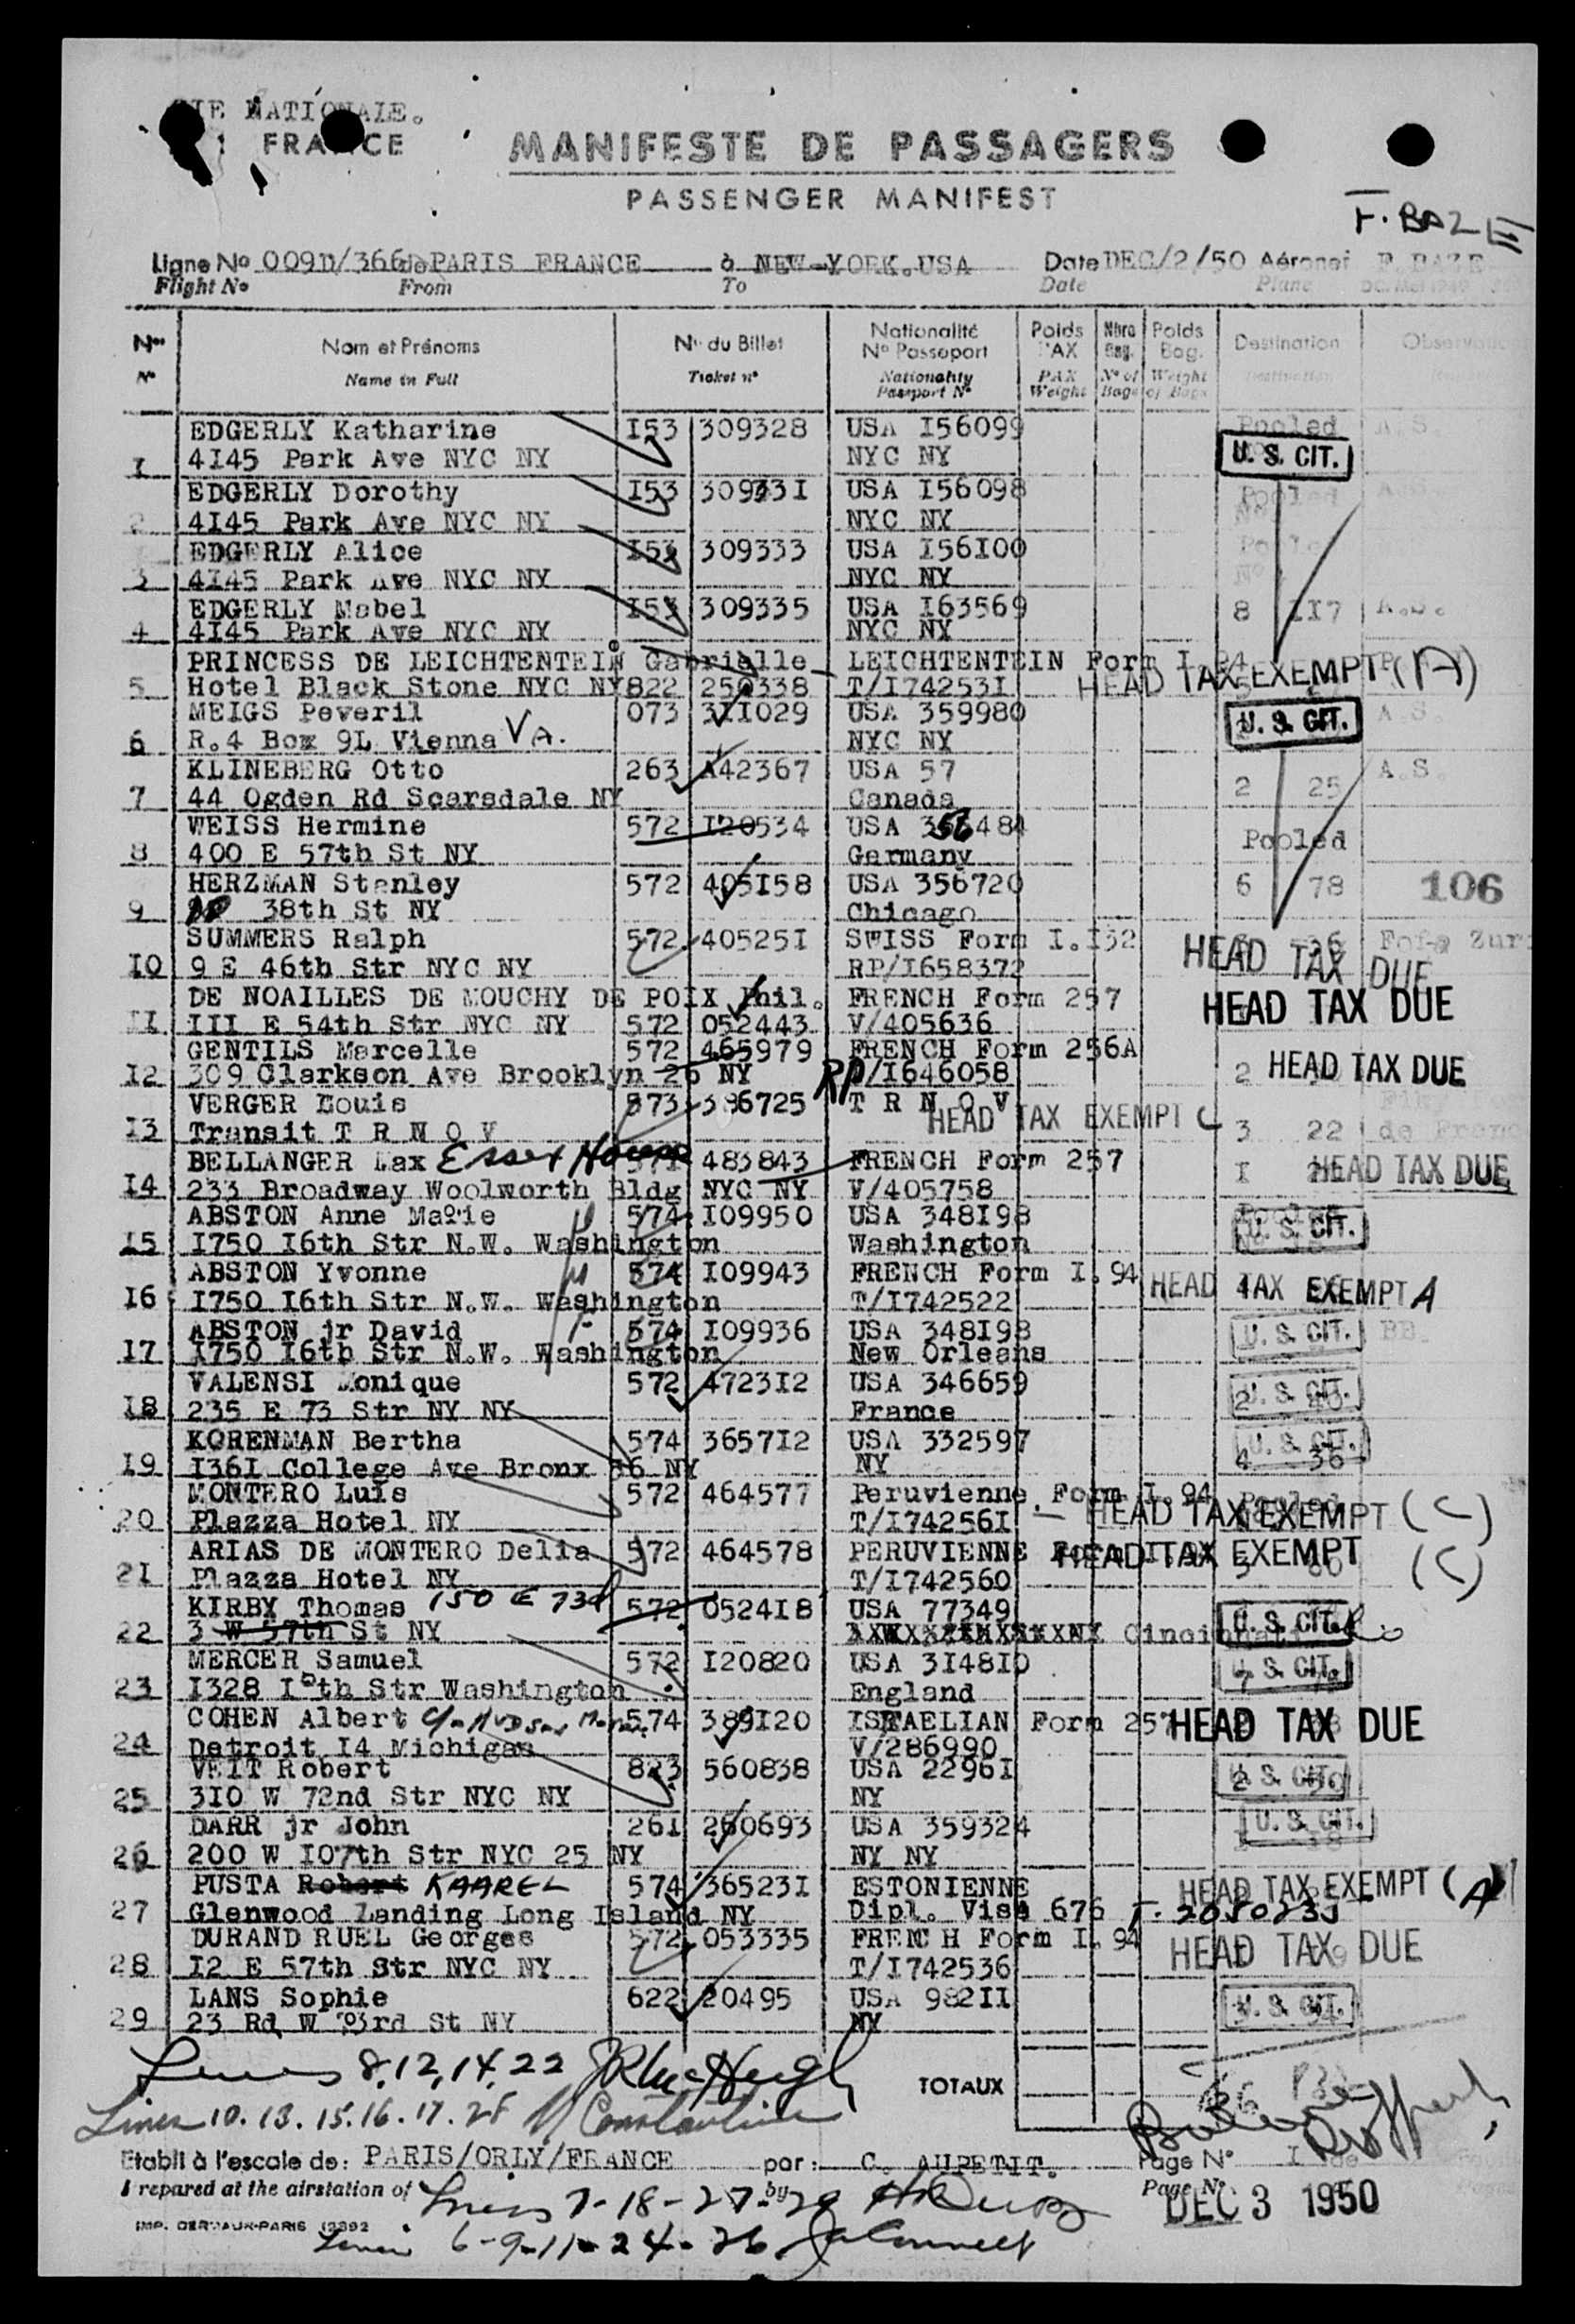 CIE NATIONALE.
FRANCE
MANIFESTE DE PASSAGERS
PASSENGER MANIFEST
F. BAZE
Ligne No 009D/366 de PARIS FRANCE à NEW-YORK.USA Date DEC/2/50 Aéronef F. BAZE
Flight No From To Date Plane
Nos Nom et Prénoms No du Billet Nationalité No Passeport Poids PAX Nbre Bag. Poids Bag. Destination Observations
No Name in Full Ticket no Nationality Passport No PAX Weight No of Bags Weight of Bags
EDGERLY Katharine I53 309328 USA I56099 Pooled A.S.
1 4I45 Park Ave NYC NY NYC NY U. S. CIT.
EDGERLY Dorothy I53 309331 USA I56098 Pooled A.S.
2 4I45 Park Ave NYC NY NYC NY
EDGERLY Alice I53 309333 USA I56I00 Pooled
3 4I45 Park Ave NYC NY NYC NY
EDGERLY Mabel I53 309335 USA I63569 8 II7 A.S.
4 4I45 Park Ave NYC NY NYC NY
PRINCESS DE LEICHTENTEIN Gabrielle LEICHTENTEIN Form I.94
5 Hotel Black Stone NYC NY 822 250338 T/I74253I HEAD TAX EXEMPT (A)
MEIGS Peveril 073 3II029 USA 359980 U. S. CIT. A.S.
6 R.4 Box 9L Vienna VA. NYC NY
KLINEBERG Otto 263 A42367 USA 57 A.S.
7 44 Ogden Rd Scarsdale NY Canada 2 25
WEISS Hermine 572 I20534 USA 356484 Pooled
8 400 E 57th St NY Germany
HERZMAN Stanley 572 405I58 USA 356720 6 78 106
9 38th St NY Chicago
SUMMERS Ralph 572 40525I SWISS Form I.I32 HEAD TAX DUE
I0 9 E 46th Str NYC NY RP/I658372
DE NOAILLES DE MOUCHY DE POIX Phil. FRENCH Form 257 HEAD TAX DUE
II III E 54th Str NYC NY 572 052443 V/405636
GENTILS Marcelle 572 465979 FRENCH Form 256A
I2 309 Clarkson Ave Brooklyn 26 NY RP/I646058 2 HEAD TAX DUE
VERGER Louis 873 386725 T R N O V HEAD TAX EXEMPT C
I3 Transit T R N O V 3 22
BELLANGER Max Essex House 571 483843 FRENCH Form 257 I HEAD TAX DUE
I4 233 Broadway Woolworth Bldg NYC NY V/405758
ABSTON Anne Marie 574 I09950 USA 348I98 U. S. CIT.
I5 I750 I6th Str N.W. Washington Washington
ABSTON Yvonne 574 I09943 FRENCH Form I.94 HEAD TAX EXEMPT A
I6 I750 I6th Str N.W. Washington T/I742522
ABSTON jr David 574 I09936 USA 348I98 U. S. CIT. BB
I7 I750 I6th Str N.W. Washington New Orleans
VALENSI Monique 572 4723I2 USA 346659 U. S. CIT.
I8 235 E 73 Str NY NY France
KORENMAN Bertha 574 3657I2 USA 332597 U. S. CIT.
I9 I36I College Ave Bronx 56 NY NY 4 36
MONTERO Luis 572 464577 Peruvienne Form I.94 Pooled
20 Plazza Hotel NY T/I74256I HEAD TAX EXEMPT (C)
ARIAS DE MONTERO Delia 572 464578 PERUVIENNE HEAD TAX EXEMPT (C)
2I Plazza Hotel NY T/I742560
KIRBY Thomas 150 E 73d 572 0524I8 USA 77349 U. S. CIT.
22 3 W 57th St NY Cincinnati
MERCER Samuel 572 I20820 USA 3I48I0 U. S. CIT.
23 I328 I th Str Washington England
COHEN Albert 574 389I20 ISRAELIAN Form 257 HEAD TAX DUE
24 Detroit I4 Michigan V/286990
VEIT Robert 823 560838 USA 2296I U. S. CIT.
25 3I0 W 72nd Str NYC NY NY
DARR jr John 26I 260693 USA 359324 U. S. CIT.
26 200 W I07th Str NYC 25 NY NY NY
PUSTA Robert KAAREL 574 36523I ESTONIENNE HEAD TAX EXEMPT (A)
27 Glenwood Landing Long Island NY Dipl. Visa 676
DURAND RUEL Georges 572 053335 FRENCH Form I.94 HEAD TAX DUE
28 I2 E 57th Str NYC NY T/I742536
LANS Sophie 622 20495 USA 982II U. S. CIT.
29 23 Rd W 23rd St NY NY
Lines 8,12,14,22 JR McHugh TOTAUX
Lines 10.13.15.16.17.28 Constantine
Etabli à l'escale de: PARIS/ORLY/FRANCE par: C. AUPETIT. Page No I
Prepared at the airstation of by Page No
Lines 7-18-27-29
DEC 3 1950
IMP. DERVAUX-PARIS 13392
Lines 6-9-11-24-26